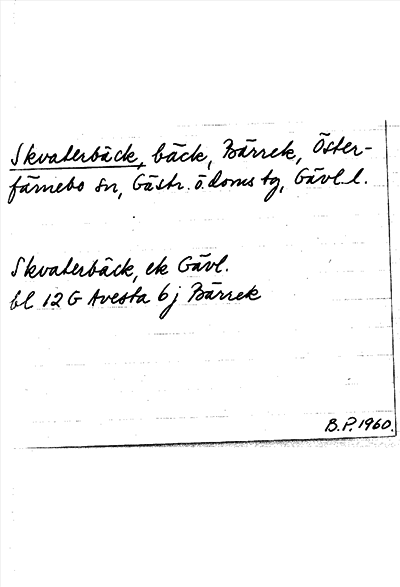 Skvaterbäck, bäck, Bärrek, Öster-
färnebo sn, Gästr. ö. doms tg, Gävl. l.
Skvaterbäck, ek Gävl.
bl 12 G Avesta 6 j Bärrek
B.P. 1960.